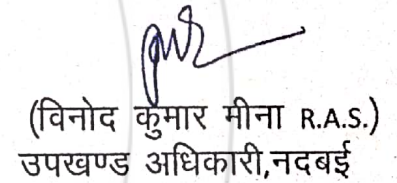 (विनोद कुमार मीना R.A.S.)
उपखण्ड अधिकारी,नदबई